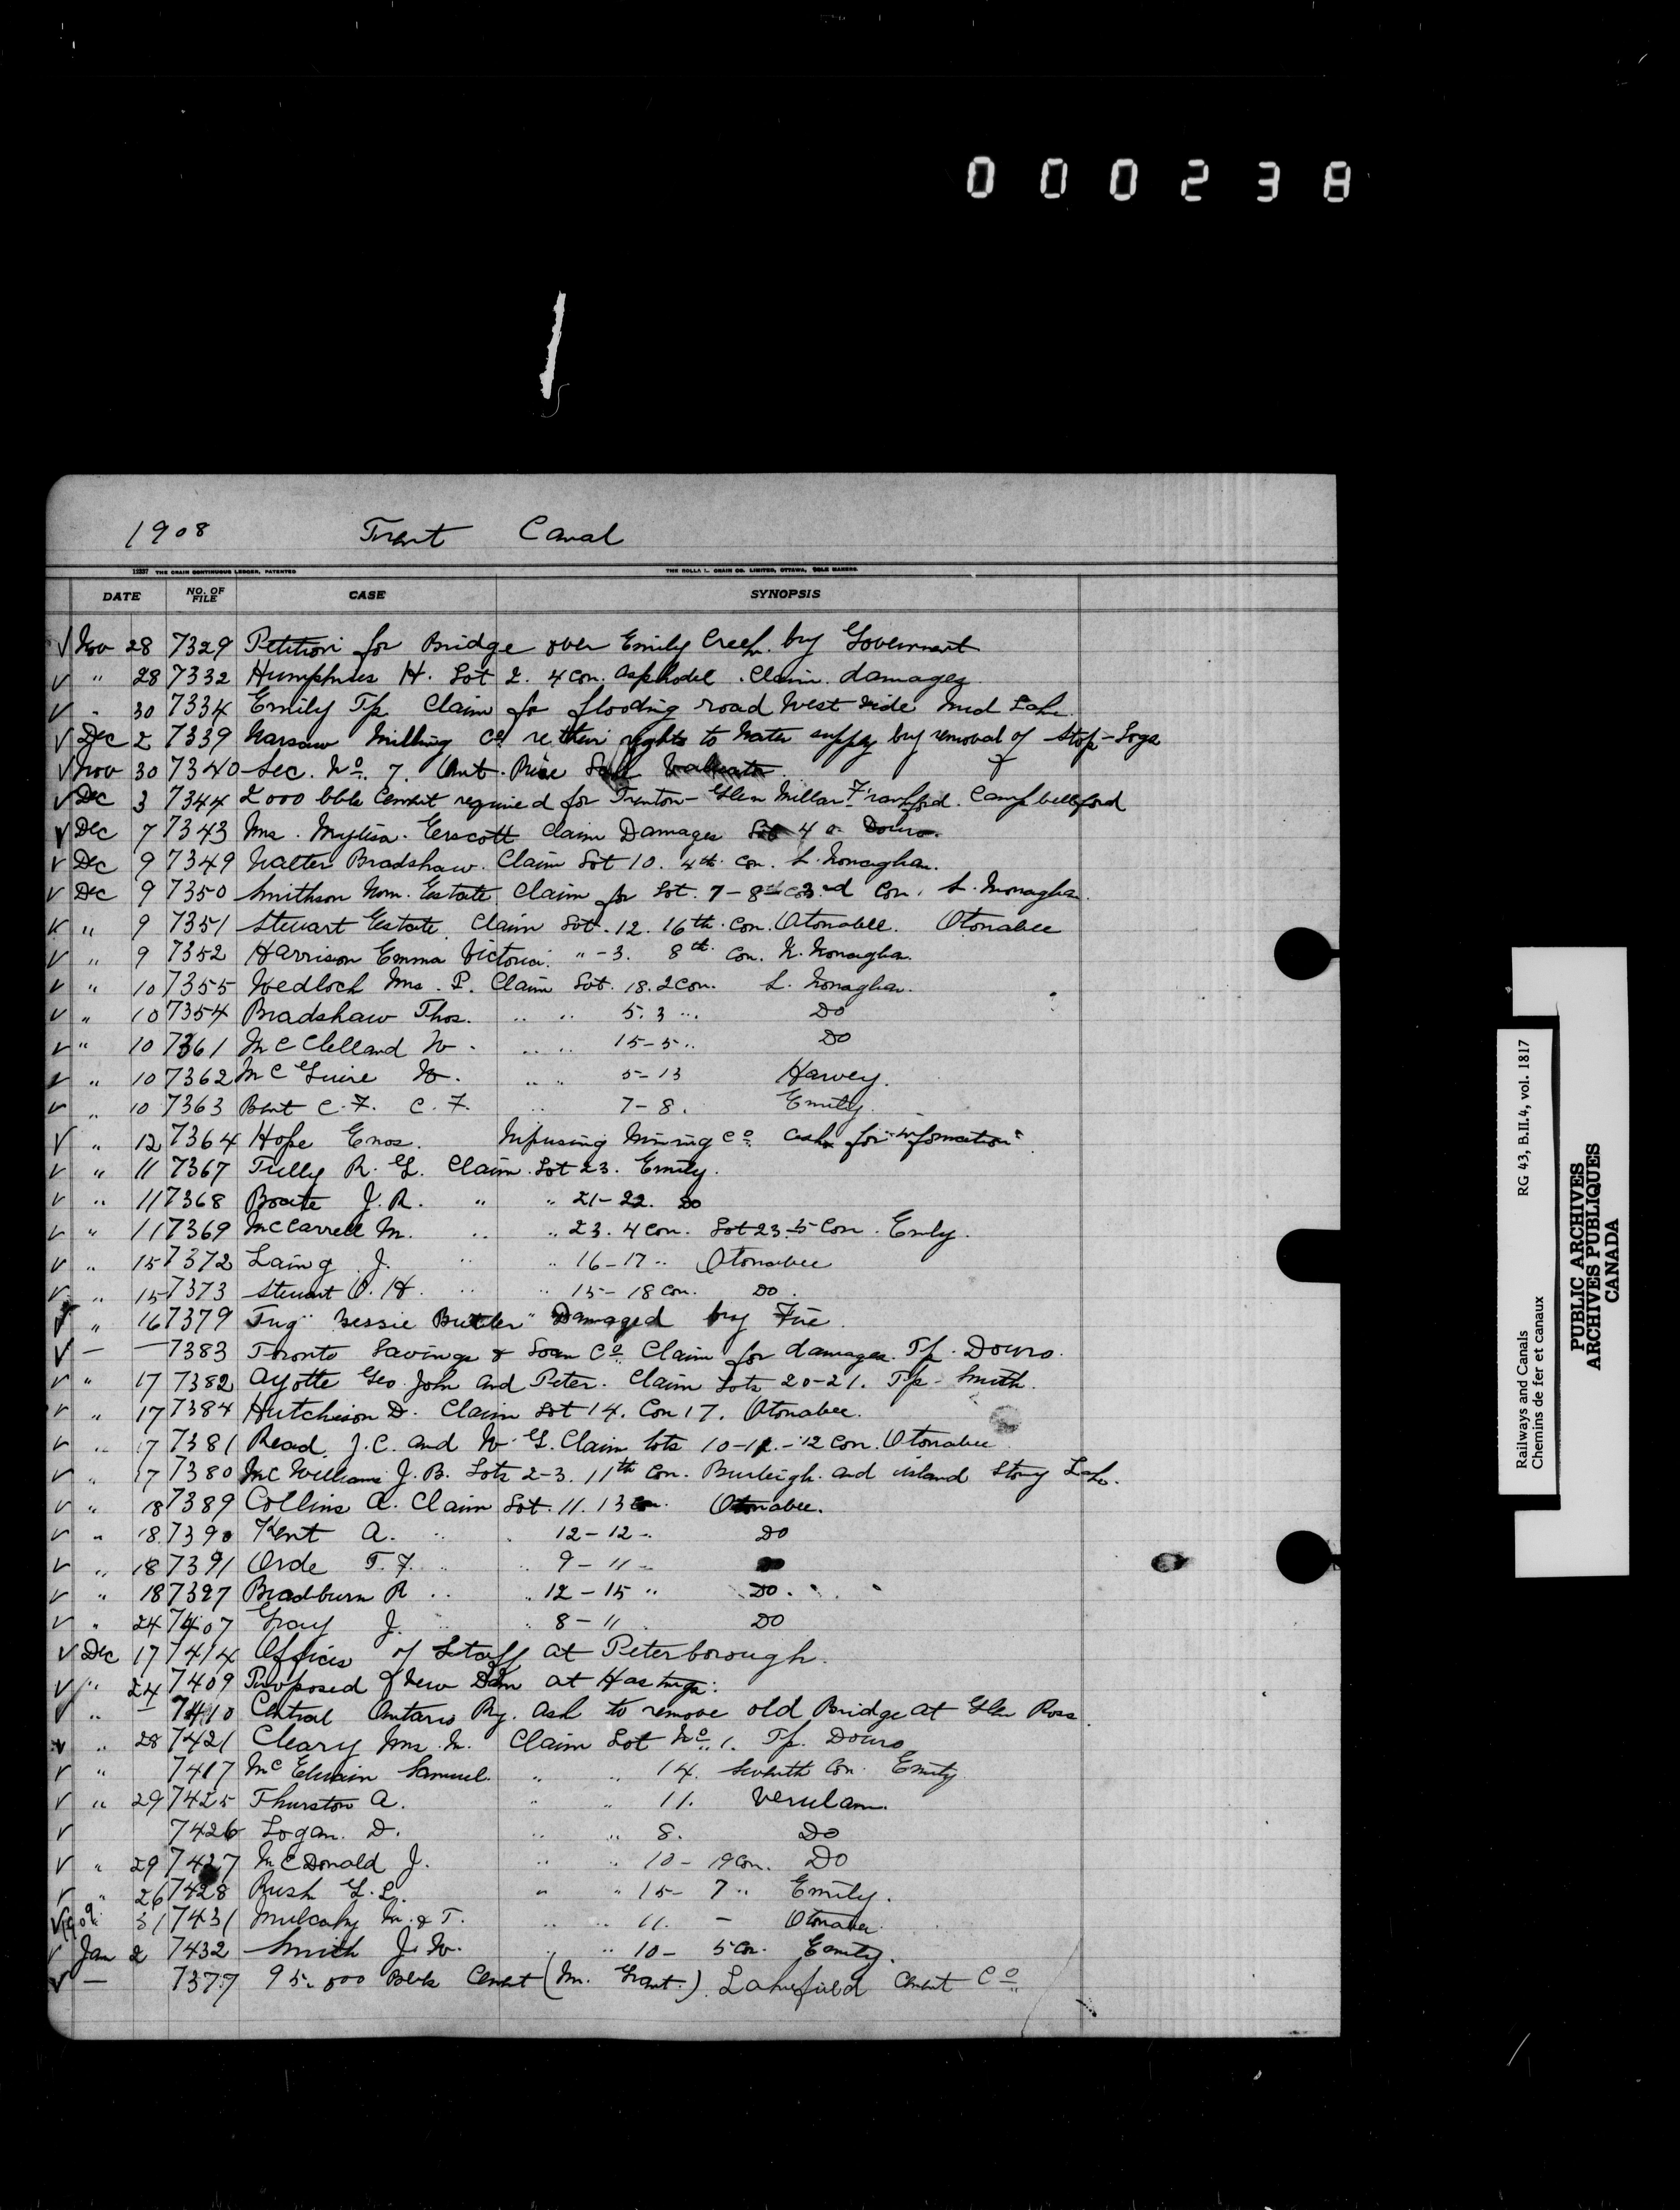 000238
1908 Trent Canal
12337 THE CRAIN CONTINUOUS LEDGER, PATENTED THE ROLLA L. CRAIN CO. LIMITED, OTTAWA, SOLE MAKERS.
DATE NO. OF FILE CASE SYNOPSIS
√ Nov 28 7329 Petition for Bridge over Emily Creek by Government
√ " 28 7332 Humphries H. Lot 2. 4 Con. Asphodel. Claim damages
√ " 30 7334 Emily Tp Claim for flooding road West side Mud Lake
√ Dec 2 7339 Warsaw Milling Co. re their rights to Water supply by removal of Stop-Logs
√ Nov 30 7340 Sec. No. 7. Ont. Rice
√ Dec 3 7344 2000 bbls Cement required for Trenton - Glen Millar Frankford. Campbellford
√ Dec 7 7343 Mrs. Claim Damages Lot 4 Douro.
√ Dec 9 7349 Walter Bradshaw. Claim Lot 10. 4th Con. S. Monaghan.
√ Dec 9 7350 Smithson Wm. Estate Claim for Lot. 7-8 3rd Con. S. Monaghan.
√ " 9 7351 Stewart Estate Claim Lot. 12. 16th. Con. Otonabee. Otonabee
√ " 9 7352 Harrison Emma Victoria. " - 3. 8th Con. N. Monaghan.
√ " 10 7355 Wedlock Mrs. P. Claim Lot. 18. 2 Con. S. Monaghan.
√ " 10 7354 Bradshaw Thos. " " 5. 3 " Do
√ " 10 7361 McClelland W. " " 15-5 " Do
√ " 10 7362 McGuire W. " " 5-13 Harvey.
√ " 10 7363 Bent C.F. C.F. " 7-8. Emily.
√ " 12 7364 Hope Enos. Mining Co. asks for "information"
√ " 11 7367 Tully R. G. Claim. Lot 23. Emily.
√ " 11 7368 J. R. " " 21-22. Do
√ " 11 7369 McCarrell M. " " 23. 4 Con. Lot 23-5 Con. Emily.
√ " 15 7372 Laing J. " " 16-17 " Otonabee
√ " 15 7373 Stewart " " 15-18 Con. Do.
√ " 16 7379 Tug "Bessie Butler" Damaged by Fire.
√ — — 7383 Toronto Savings & Loan Co. Claim for damages. Tp. Douro.
√ " 17 7382 Ayotte Geo. John and Peter. Claim Lots 20-21. Tp. Smith.
√ " 17 7384 Hutchison D. Claim Lot 14. Con 17. Otonabee.
√ " 17 7381 Read J.C. and W. G. Claim lots 10-11.-12 Con. Otonabee
√ " 17 7380 McWilliams J. B. Lots 2-3. 11th Con. Burleigh. and island Stony Lake.
√ " 18 7389 Collins A. Claim Lot. 11. 13 Con. Otonabee.
√ " 18 7390 Kent A. " " 12-12 " Do
√ " 18 7391 Orde T. F. " " 9-11 "
√ " 18 7397 Bradburn R " " 12-15 " Do.
√ " 24 7407 Gray J. " " 8-11 Do
√ Dec 17 7414 Offices of Staff at Peterborough.
√ " 24 7409 Proposed New Dam at Hastings.
√ " — 7410 Central Ontario Ry. Ask to remove old Bridge at Glen Ross.
√ " 28 7421 Cleary Mrs. M. Claim Lot No. 1. Tp. Douro
√ " 7417 McElwain Samuel " " 14. Seventh Con. Emily
√ " 29 7425 Thurston A. " " 11. Verulam.
√ 7426 Logan. D. " " 8. Do
√ " 29 7427 McDonald J. " " 10-19 Con. Do
√ " 26 7428 Rush G. L. " " 15-7 " Emily.
√ 1909 31 7431 Mulcahy M. & T. " " 11. - Otonabee
√ Jan 2 7432 Smith J. W. " " 10-5 Con. Emily.
√ — 7377 95.000 Bbls Cement (Mr. Grant.). Lakefield Cement Co.
Railways and Canals RG 43, B.II.4, vol. 1817
Chemins de fer et canaux
PUBLIC ARCHIVES
ARCHIVES PUBLIQUES
CANADA